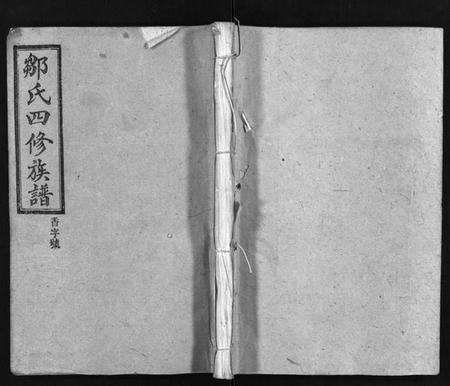 鄒氏四修族譜
香字號